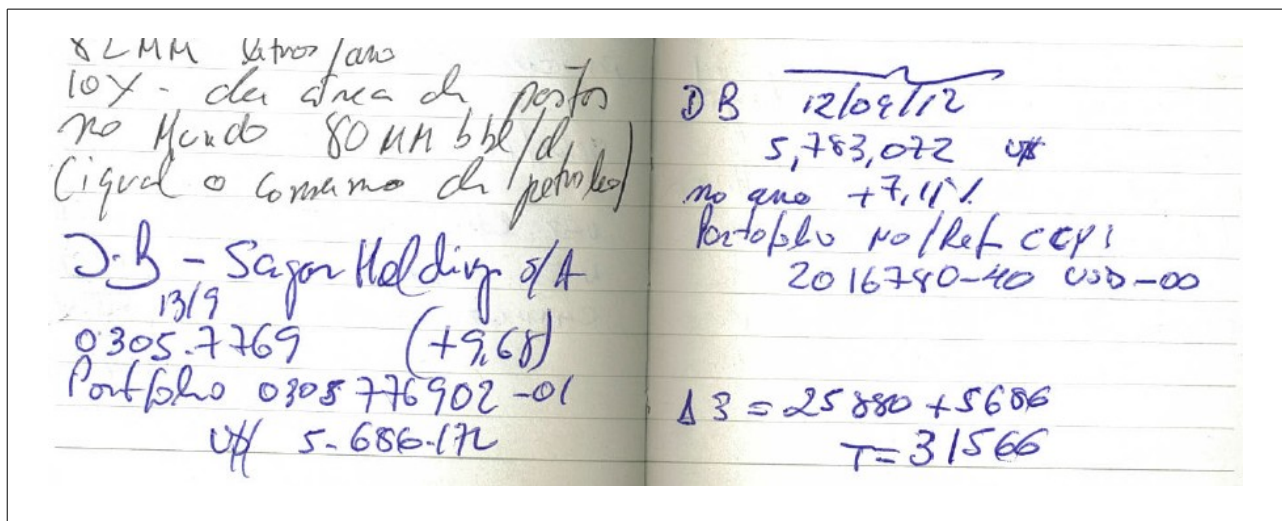 82MM litros/ano
10X - da área de postos
no Mundo 80MM bbl/d,
(igual o consumo de petroleo)
J.B - Sagor Holding S/A
13/9
0305.7769 (+9,68)
Portfolio 0305776902-01
U$ 5-686-172
DB 12/09/12
5,783,072 U$
no ano +7,11%
Portofolio No/Ref CCY1
2016780-40 USD-00
Δ3 = 25880 + 5686
T = 31566